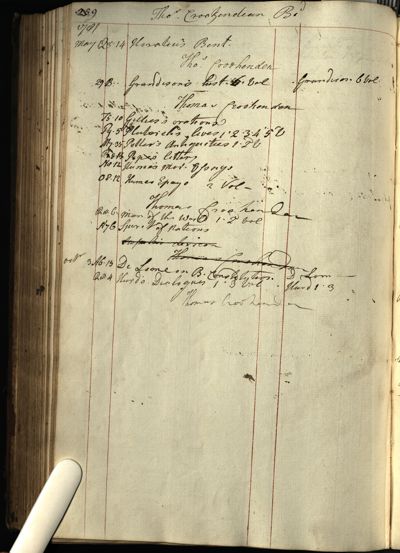 289 Tho.s Crookendean B.
1781
May Qs 14 Horatii Bent.
Tho.s Crookenden
Grandison's hist. 6 Vol Grandison 6 Vol
Thomas Crookenden
10 Gillies's orations
Plutarch's lives 1 2 3 4 5 V
Potter's Antiquities 1. 2 V
Popes letters
No 12 Humes Mor. Essays
O8.12 Humes Essays 2 Vol
Thomas Crookenden
Man of the World 1. 2 Vol
Spirit of Nations
Thomas Crookend
3 Ab 13 De Lome on B. Constitution. D' Lom
Q8.4 Hurds Dialogues 1. 3 Vol Hurd 1. 3
Thomas Crookenden